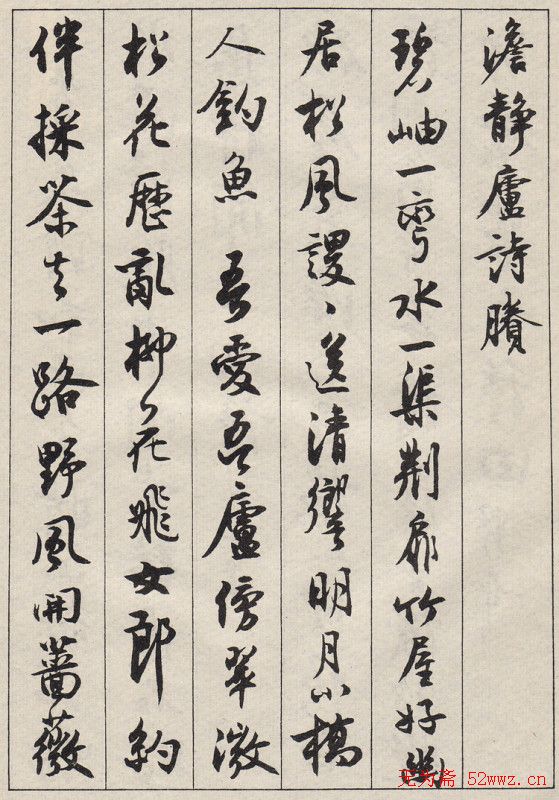 澹静廬詩賸
碧岫一彎水一渠荆扉竹屋好幽
居松風謖、送清響明月小橋
人釣魚 吾愛吾廬傍翠微
松花歷亂柳花飛女郎約
伴採茶去一路野風開薔薇
无为斋 52wwz.cn